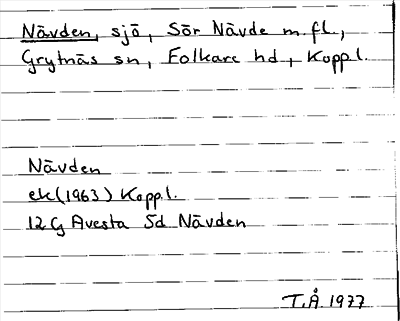 Nävden, sjö, Sör Nävde m.fl.,
Grytnäs sn, Folkare hd, Koppl.
Nävden
ek(1963) Koppl.
12 G Avesta 5d Nävden
T.Å. 1977